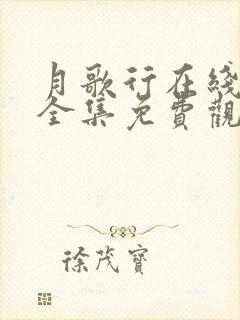 月歌行在綫
全集免費觀
徐茂寶